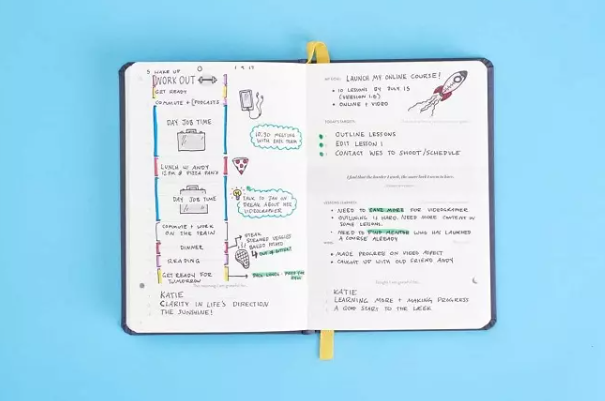 5 WAKE UP
WORK OUT
GET READY
COMMUTE + [PODCASTS]
DAY JOB TIME
12:30 MEETING
WITH TEAM
LUNCH W/ ANDY
12PM @ PIZZA
DAY JOB TIME
TALK TO JON ON
BREAK ABOUT HIS
VIDEOGRAPHER
COMMUTE + WORK
ON THE TRAIN
STEAK
STEAMED VEGGIES
BAKED POTATO
DINNER
READING
GET READY FOR
TOMORROW
KATIE
CLARITY IN LIFE'S DIRECTION
THE SUNSHINE!
LAUNCH MY ONLINE COURSE!
• 10 LESSONS BY JULY 15
(VERSION 1.0)
• ONLINE + VIDEO
OUTLINE LESSONS
EDIT LESSON 1
CONTACT WES TO SHOOT/SCHEDULE
• NEED TO SAVE MORE FOR VIDEOGRAPHER
• OUTLINING IS HARD. NEED MORE CONTENT IN
SOME LESSONS.
• NEED TO FIND MENTOR WHO HAS LAUNCHED
A COURSE ALREADY
• MADE PROGRESS ON VIDEO ASPECT
• CAUGHT UP WITH OLD FRIEND ANDY
KATIE
LEARNING MORE + MAKING PROGRESS
A GOOD START TO THE WEEK